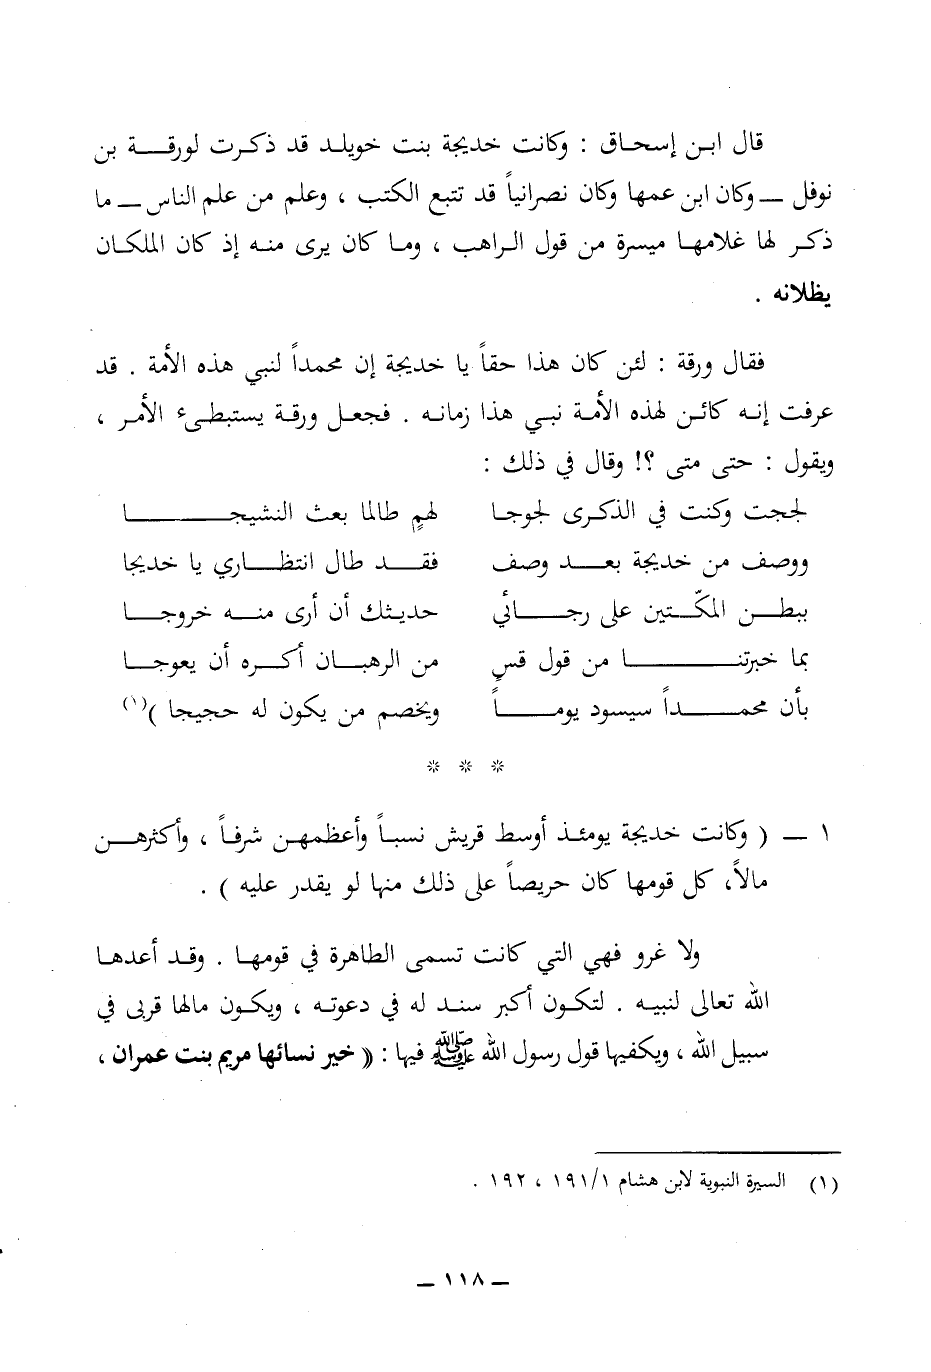 قال ابن إسحاق : وكانت خديجة بنت خويلد قد ذكرت لورقة بن
نوفل ــ وكان ابن عمها وكان نصرانياً قد تتبع الكتب ، وعلم من علم الناس ــ ما
ذكر لها غلامها ميسرة من قول الراهب ، وما كان يرى منه إذ كان الملكان
يظلانه .
فقال ورقة : لئن كان هذا حقاً يا خديجة إن محمداً لنبي هذه الأمة . قد
عرفت إنه كائن لهذه الأمة نبي هذا زمانه . فجعل ورقة يستبطيء الأمر ،
ويقول : حتى متى ؟! وقال في ذلك :
لججت وكنت في الذكرى لجوجا لهمٍ طالما بعث النشيجا
ووصف من خديجة بعد وصف فقد طال انتظاري يا خديجا
ببطن المكّتين على رجائي حديثك أن أرى منه خروجا
بما خبرتنا من قول قسٍ من الرهبان أكره أن يعوجا
بأن محمداً سيسود يوماً ويخصم من يكون له حجيجا )(١)
* * *
١ ــ ( وكانت خديجة يومئذ أوسط قريش نسباً وأعظمهن شرفاً ، وأكثرهن
مالاً، كل قومها كان حريصاً على ذلك منها لو يقدر عليه ) .
ولا غرو فهي التي كانت تسمى الطاهرة في قومها . وقد أعدها
الله تعالى لنبيه . لتكون أكبر سند له في دعوته ، ويكون مالها قربى في
سبيل الله ، ويكفيها قول رسول الله ﷺ فيها : « خير نسائها مريم بنت عمران ،
(١) السيرة النبوية لابن هشام ١٩١/١ ، ١٩٢ .
ــ ١١٨ ــ